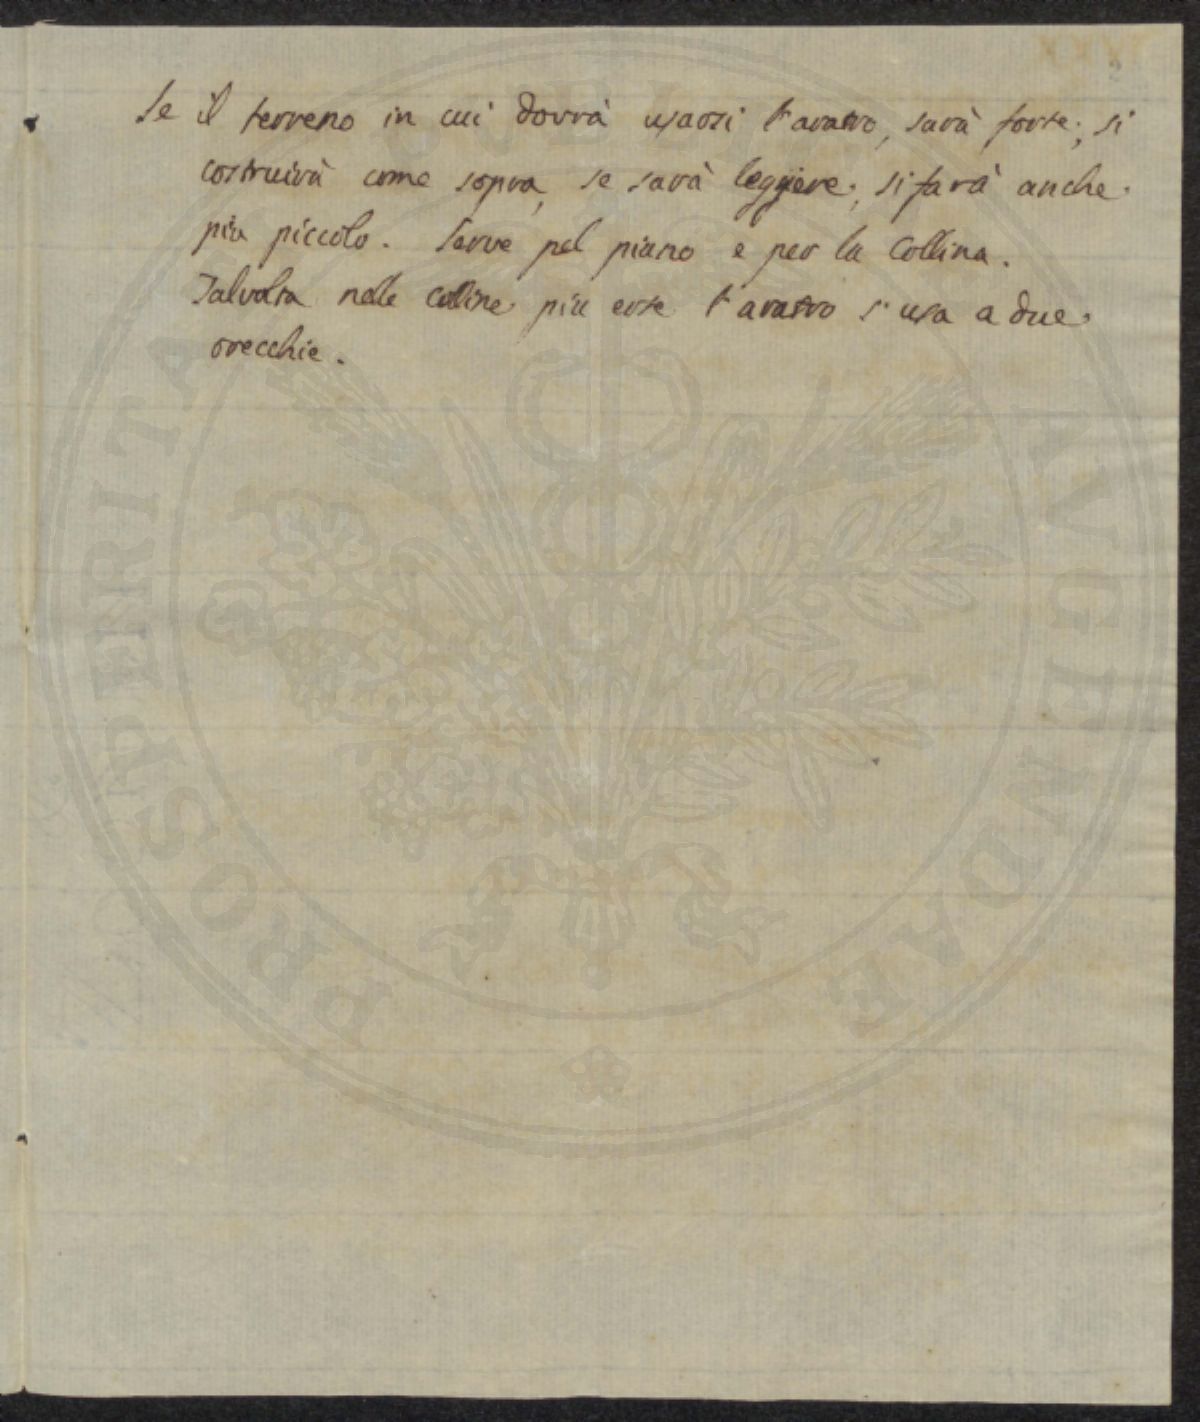 Se il terreno in cui dovrà usarsi l'aratro, sarà forte, si
costruirà come sopra, se sarà leggiere, si farà anche
più piccolo. Serve pel piano e per la Collina.
Talvolta nelle Colline più erte l'aratro s'usa a due
orecchie.
PROSPERITATI PUBLICAE AUGENDAE